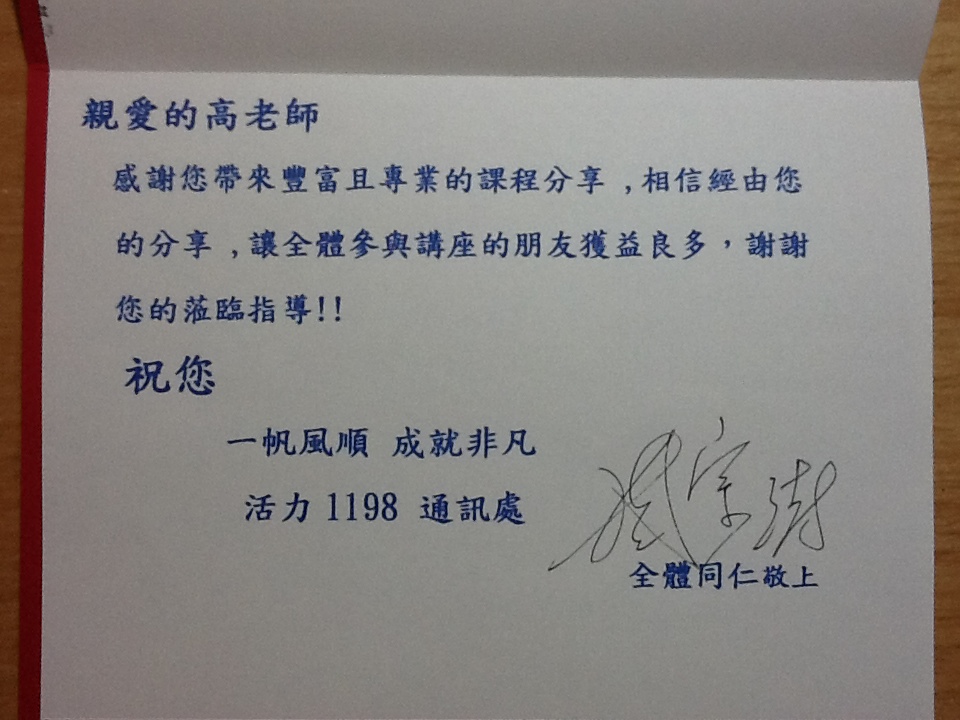 親愛的高老師
感謝您帶來豐富且專業的課程分享 ,相信經由您
的分享 ,讓全體參與講座的朋友獲益良多，謝謝
您的蒞臨指導!!
祝您
一帆風順 成就非凡
活力 1198 通訊處
全體同仁敬上